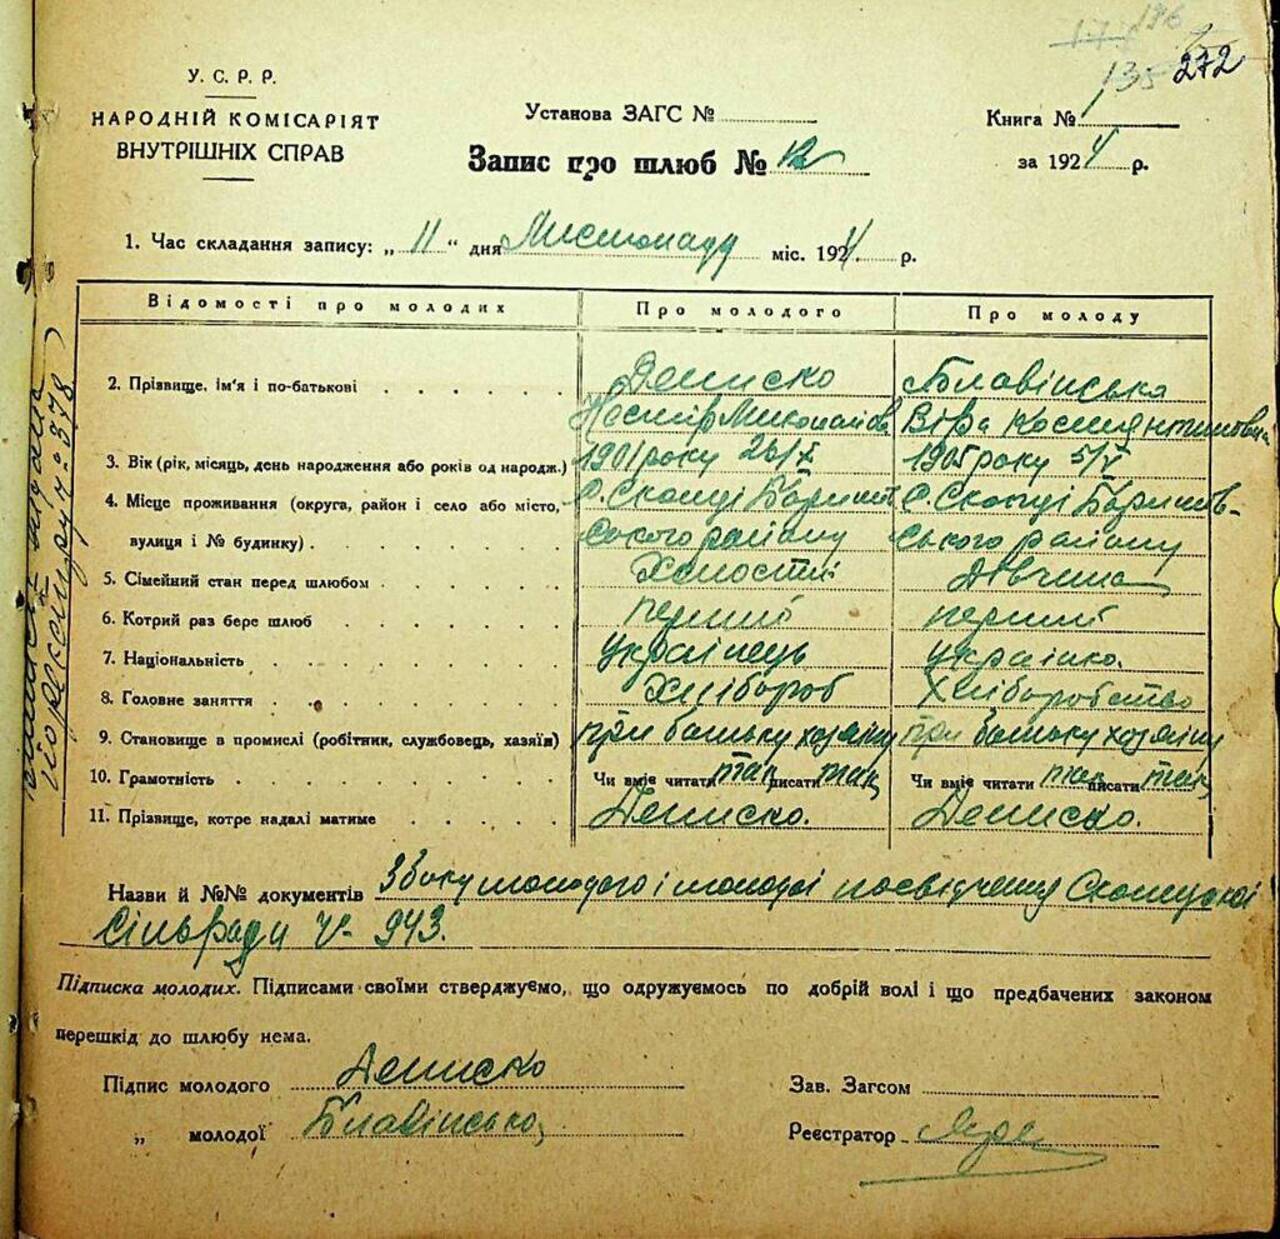 135 272
У. С. Р. Р.
НАРОДНІЙ КОМІСАРІЯТ
ВНУТРІШНІХ СПРАВ
Установа ЗАГС №
Запис про шлюб № 12
Книга № 1
за 1924 р.
1. Час складання запису: „ 11 “ дня Листопаду міс. 1924 р.
Відомості про молодих Про молодого Про молоду
2. Прізвище, ім'я і по-батькові Дениско Блавінська
Нестір Миколайов Віра Костянтиновна
3. Вік (рік, місяць, день народження або років од народж.) 1901 року 26/X 1905 року 5/V
4. Місце проживання (округа, район і село або місто, С. Скопці Баришів С. Скопці Баришів-
вулиця і № будинку) ського району ського району
5. Сімейний стан перед шлюбом Холостий Дівчина
6. Котрий раз бере шлюб перший перший
7. Національність Українець українка.
8. Головне заняття Хлібороб Хліборобство
9. Становище в промислі (робітник, службовець, хазяїн) при батьку хозяїну при батьку хозяїну
10. Грамотність Чи вміє читати так писати так Чи вміє читати так писати так
11. Прізвище, котре надалі матиме Дениско. Дениско.
Назви й №№ документів З боку молодого і молодої посвідчення Скопецької
Сільради № 943.
Підписка молодих. Підписами своїми стверджуємо, що одружуємось по добрій волі і що предбачених законом
перешкід до шлюбу нема.
Підпис молодого Дениско
Зав. Загсом
„ молодої Блавінська
Реєстратор